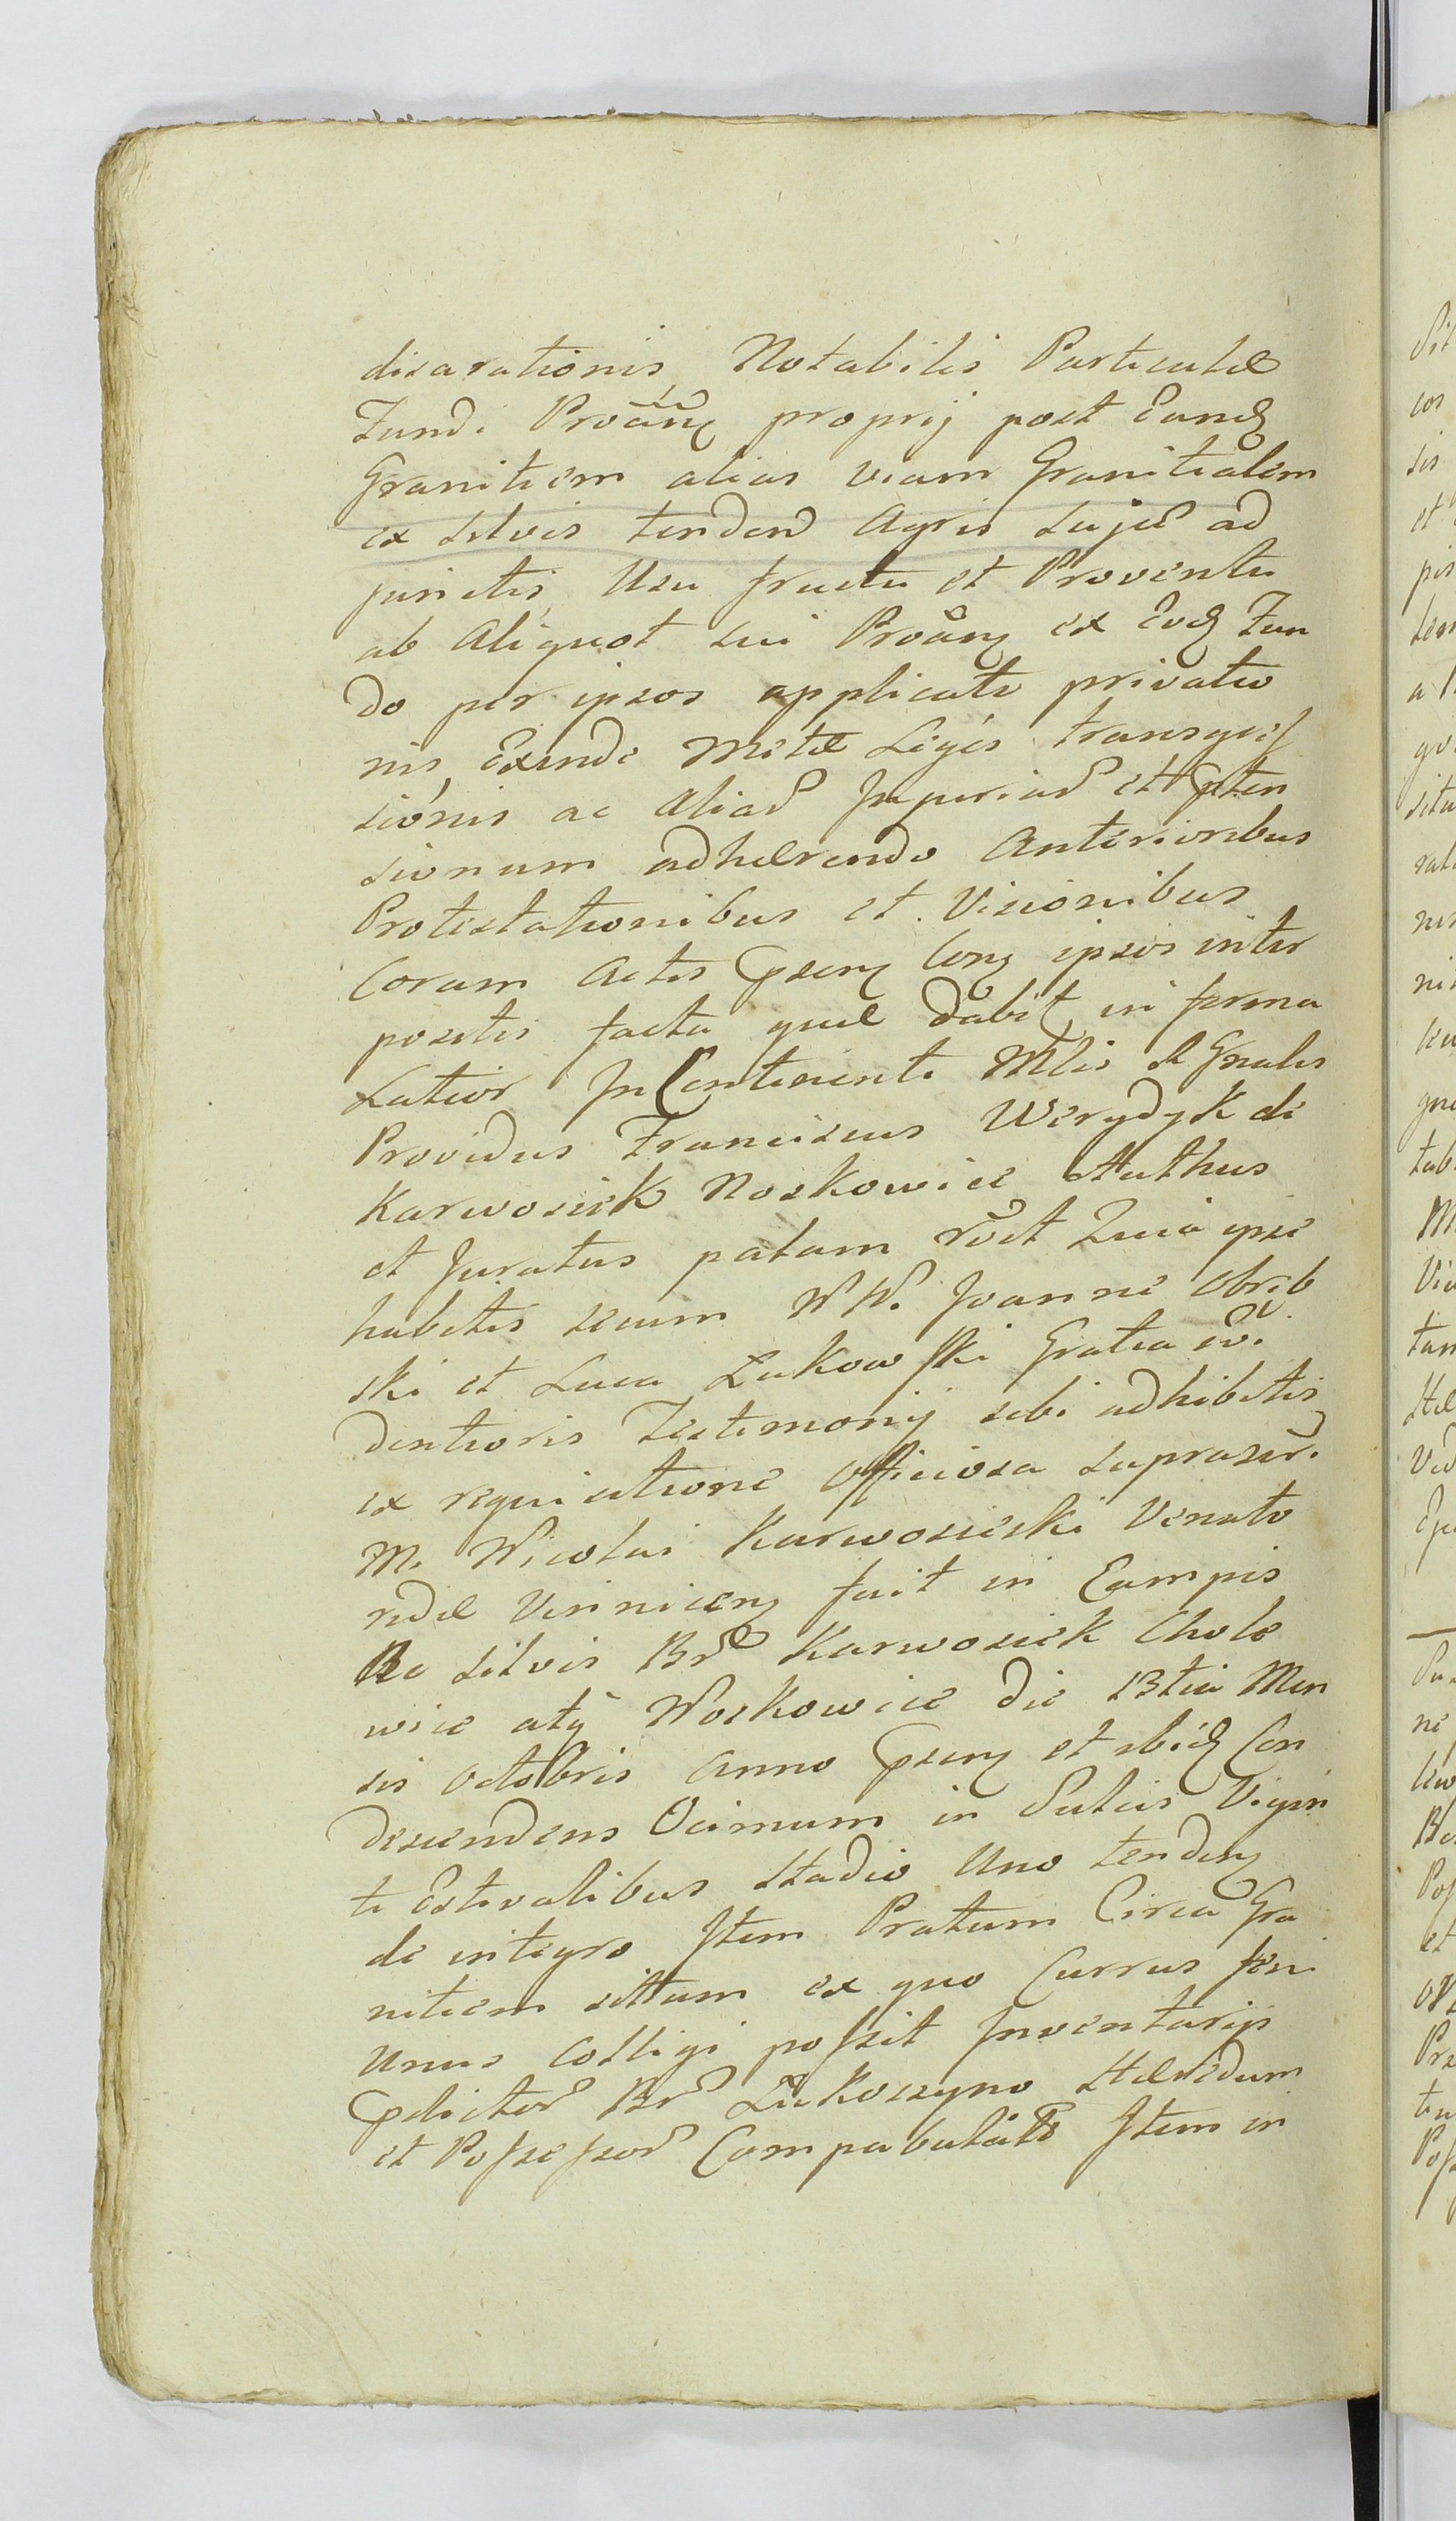 disarationis, Notabilis Particulæ
Fundi Proãnꝫ proprij post Eandꝫ
Granitiem alias viam Granitialem
ex silvis tendend Agris sujus ad
junctis, Usu fructu et Proventu
ab Aliquot sui Proãnꝫ ex Eodꝫ Fun
do per ipsos applicato privatio
nis, Exinde Metæ Legis transgres
sionis ac Aliar Injuriar et prten
sionum adhærendo Anterioribus
Protestationibus et Visionibus
Coram Actis prsenꝫ Conꝫ ipsos inter
positis facta quæ dabit in forma
Latior In Continenti Mtlis R Gnalis
Providus Franciscus Werydyk de
Karwosiek Noskowice Authus
et Juratus palam rõet Quia ipse
habitis secum W W. Joanne Obręb
ski et Luca Łukowski Gratia evi
dentioris Testimonij sibi adhibitis
ex requisitione Officiosa suprascr.
M. Nicolai Karwosieski Venato
ridæ Vinnicenꝫ fuit in Campis
Ac silvis Br Karwosiek Chole
wice atq Noskowice die 13tia Men
sis Octobris Anno prsenꝫ et ibidꝫ Con
descendens Ocimum in Sulcis Vigin
ti Estivalibus Stadio Uno tendenꝫ
de integro Item Pratum Circa Gra
nitiem sittum ex quo Currus feni
Unus Colligi possit Inventarijs
prdictor Br Lukoszyno Hæredum
et Possessor Compabulatũ Item in